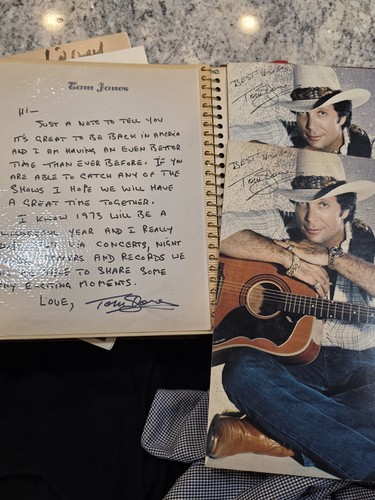 Tom Jones
Hi—
Just a note to tell you
it's great to be back in America
and I am having an even better
time than ever before. If you
are able to catch any of the
shows I hope we will have
a great time together.
I know 1973 will be a
successful year and I really
that via concerts, night
and records we
able to share some
exciting moments.
Love, Tom Jones
Best Wishes
Tom Jones
Best Wishes
Tom Jones